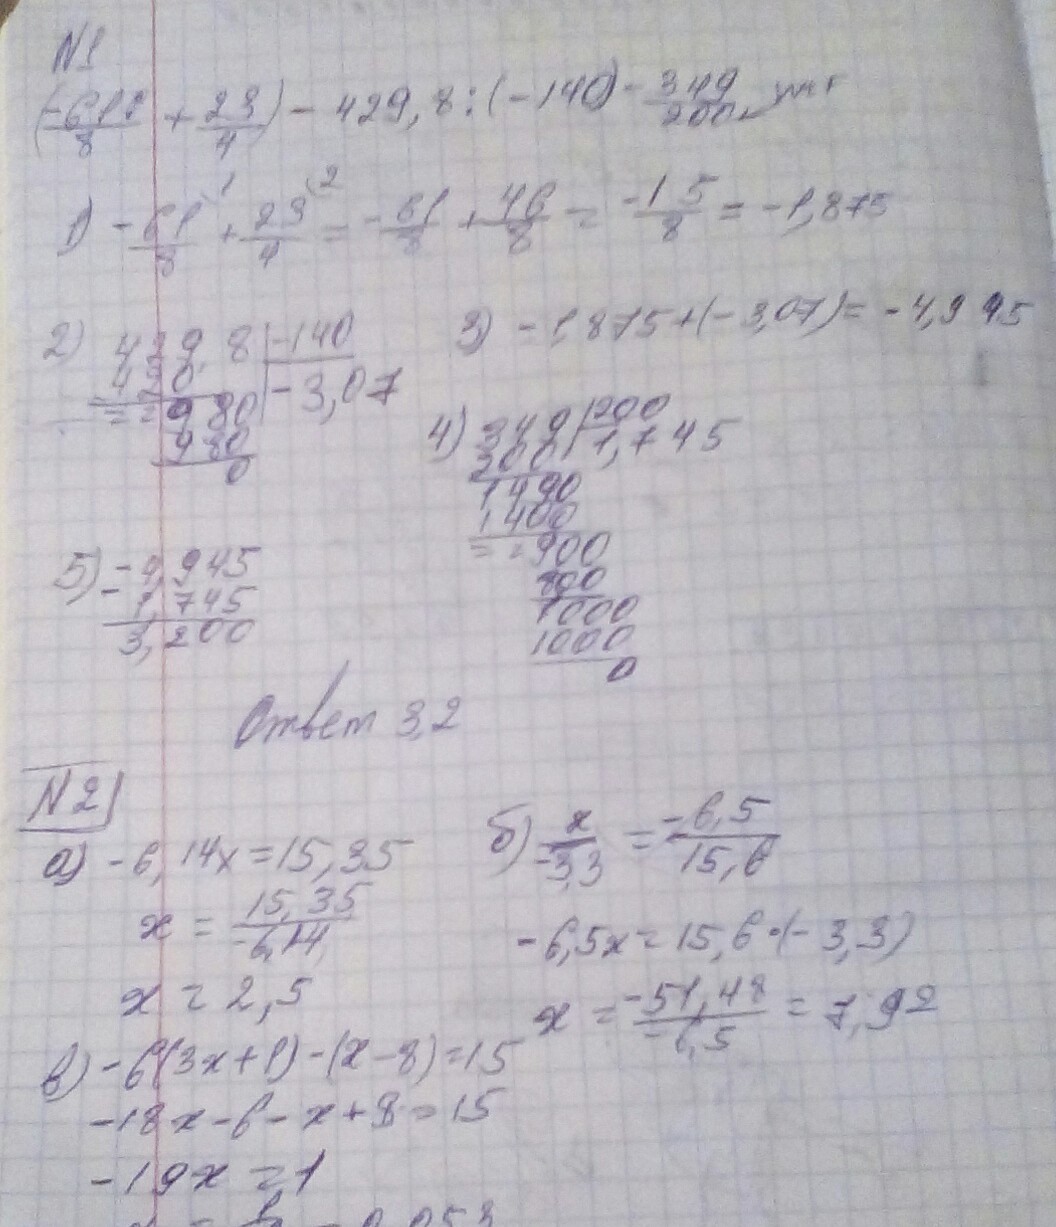 N1
(-61/8 + 23/4) - 429,8 : (-140) - 349/200
1) -61/8 + 23/4 = -61/8 + 46/8 = -15/8 = -1,875
2) 429,8 | -140
420 | -3,07
980
980
0
3) -1,875 + (-3,07) = -4,945
4) 349 | 200
200 | 1,745
1490
1400
900
800
1000
1000
0
5) -4,945
- 1,745
3,200
Ответ 3,2
N2
а) -6,14x = 15,35
x = 15,35/-6,14
x = 2,5
б) x/-3,3 = -6,5/15,6
-6,5x = 15,6·(-3,3)
x = -51,48/-6,5 = 7,92
в) -6(3x+1)-(x-8)=15
-18x-6-x+8=15
-19x = 1